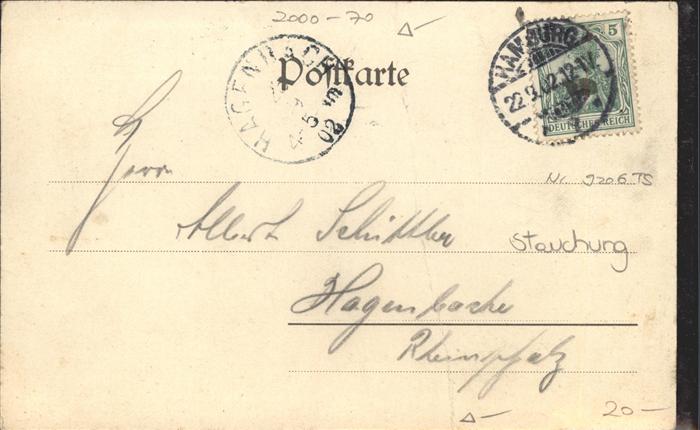 2000-70
HAGENBACH
4-5
02
Postkarte
HAMBURG
22.9.02.12-1V.
5
DEUTSCHES REICH
Herrn
Nr. 9206 TS
Albert Schüttler
Stauchung
Hagenbach
Rheinpfalz
20-